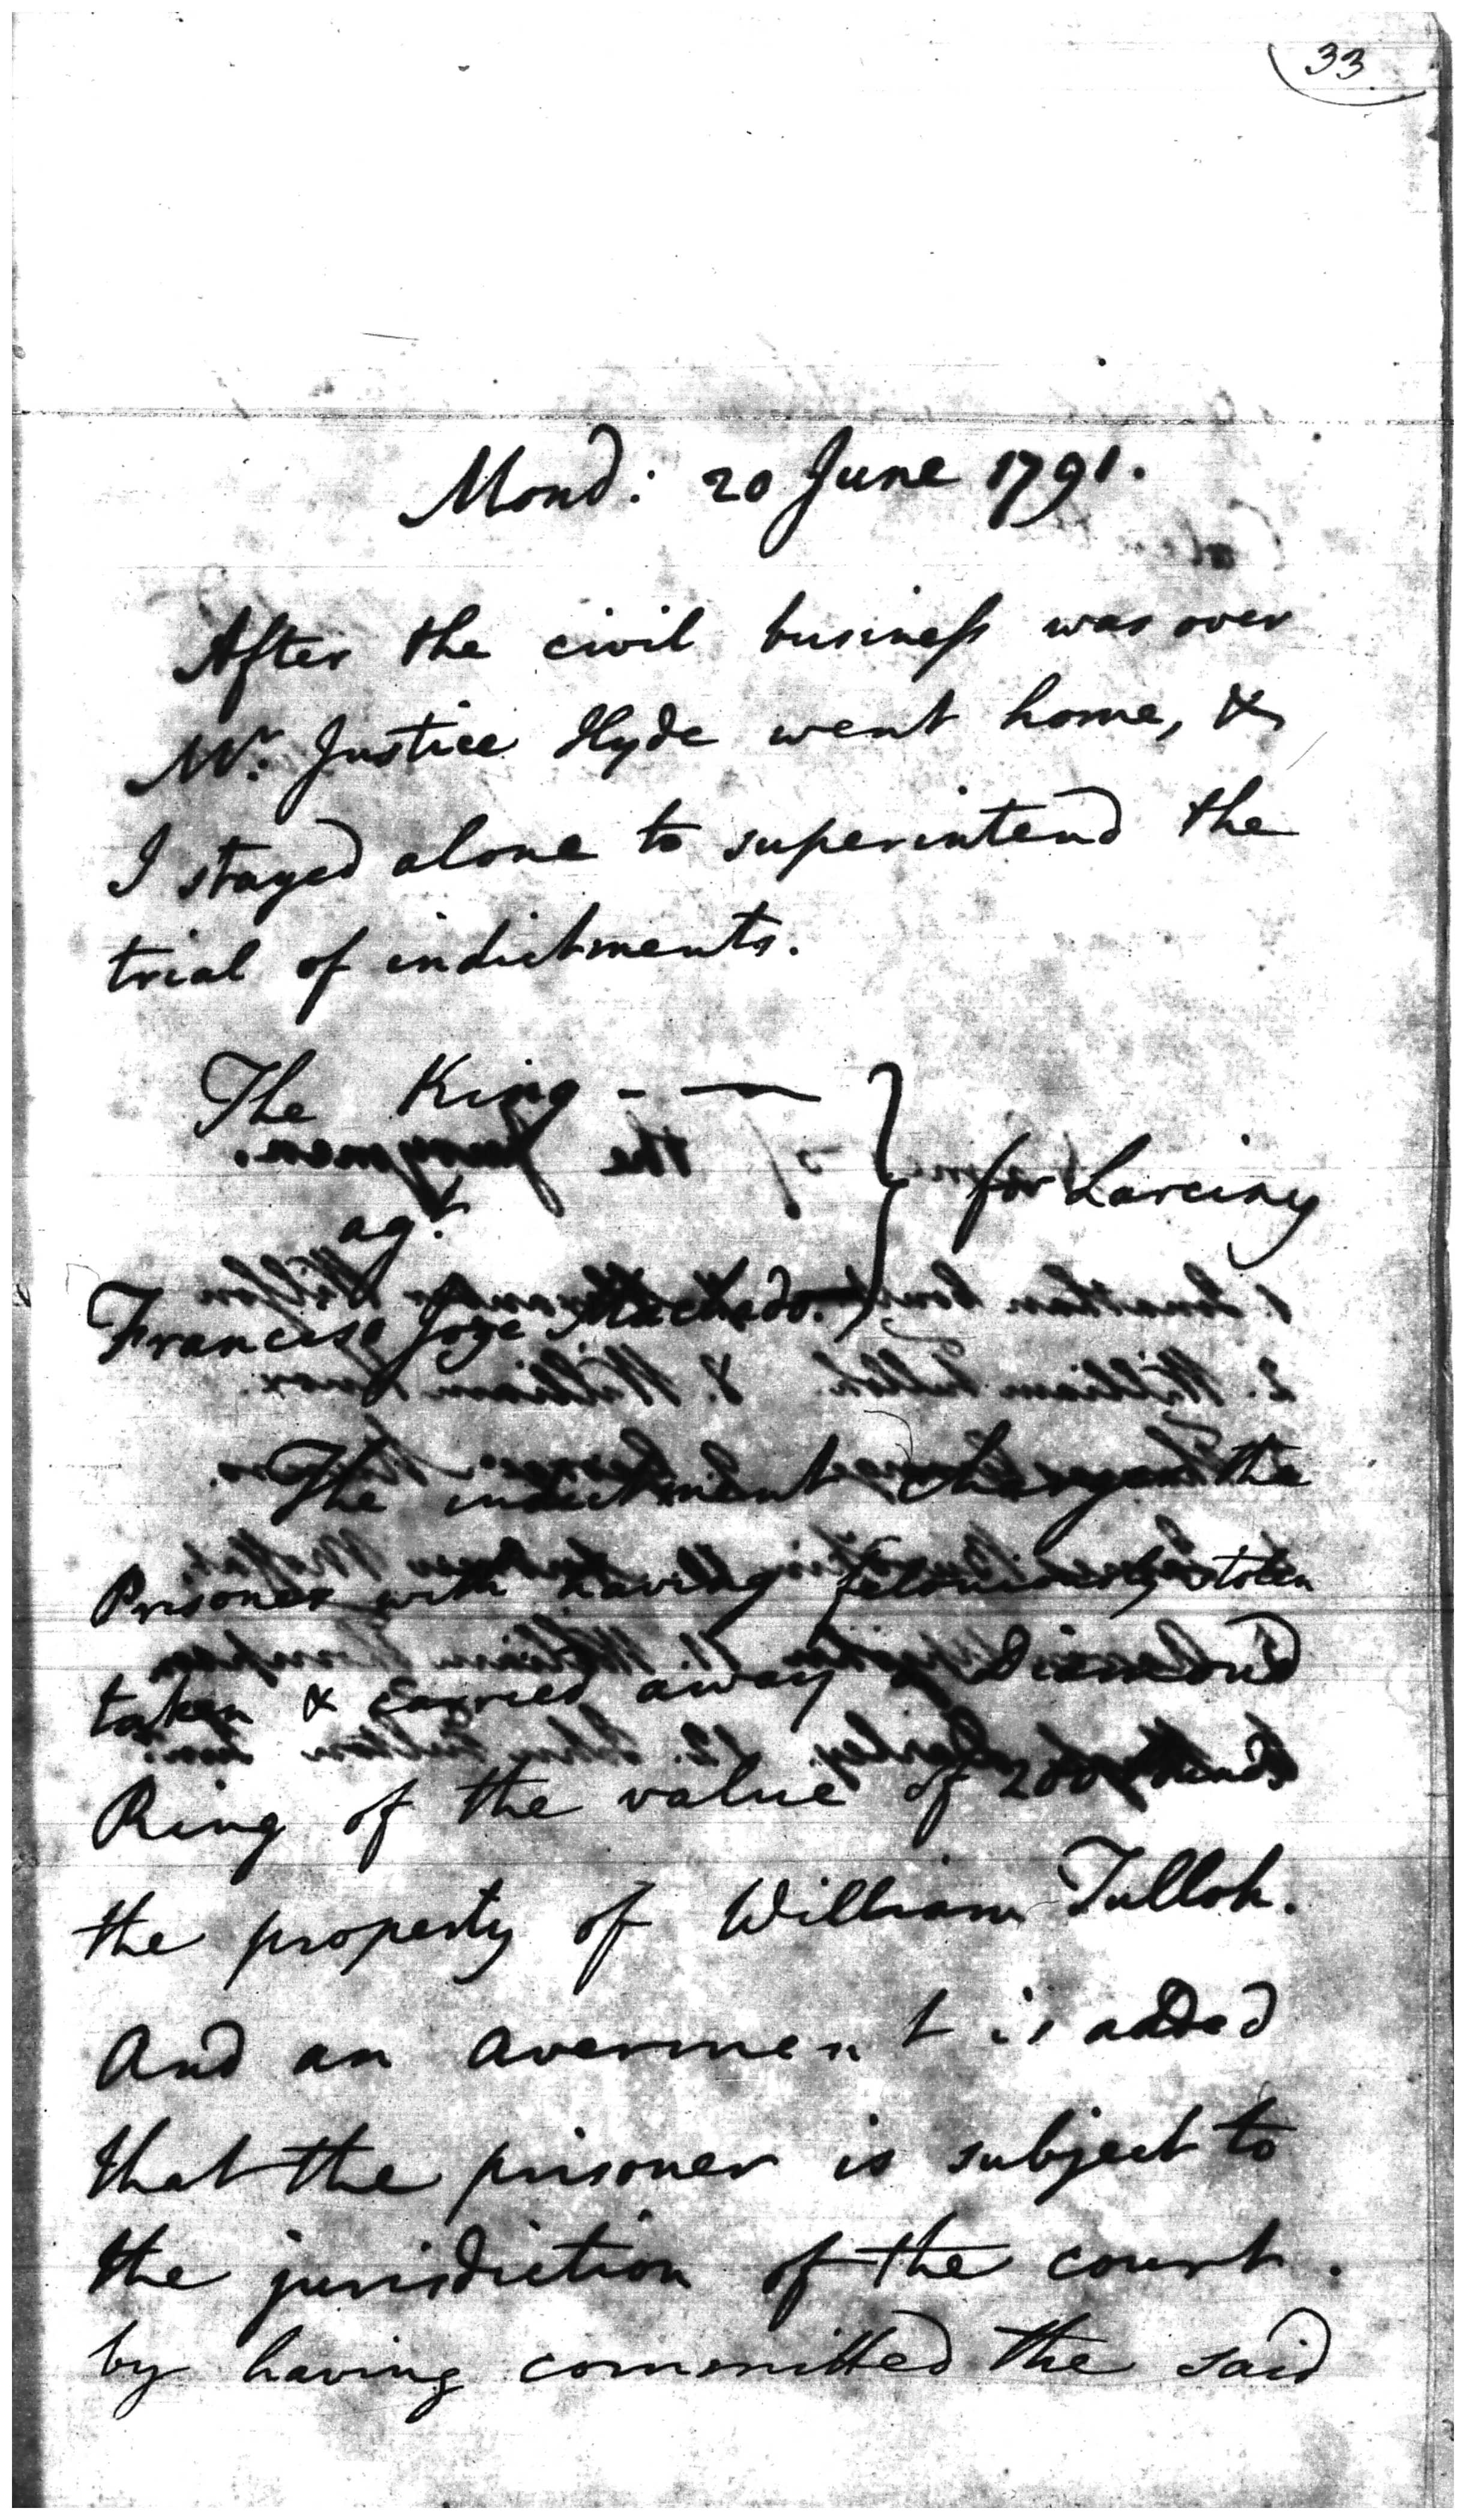 33
Mond: 20 June 1791.
After the civil business was over
Mr. Justice Hyde went home, &
I stayed alone to superintend the
trial of indictments.
The King - —
agt.
for Larciny
Francisco Joze Machado.
The indictment charges the
Prisoner with having feloniously stolen
taken & carried away a Diamond
Ring of the value of 200
the property of William Tulloh.
And an averment is added
that the prisoner is subject to
the jurisdiction of the court.
by having committed the said